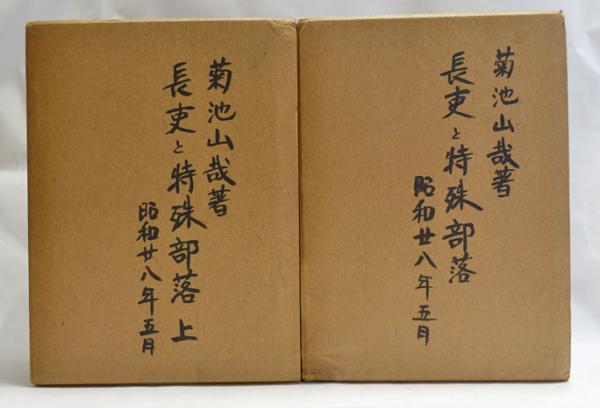 菊池山哉著
長吏と特殊部落 上
昭和廿八年五月
菊池山哉著
長吏と特殊部落
昭和廿八年五月